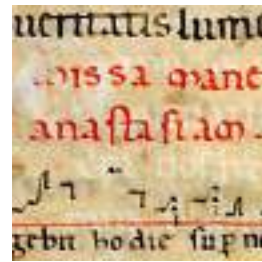 ueritatis lume
missa mane
anastasiam
gebit hodie sup no